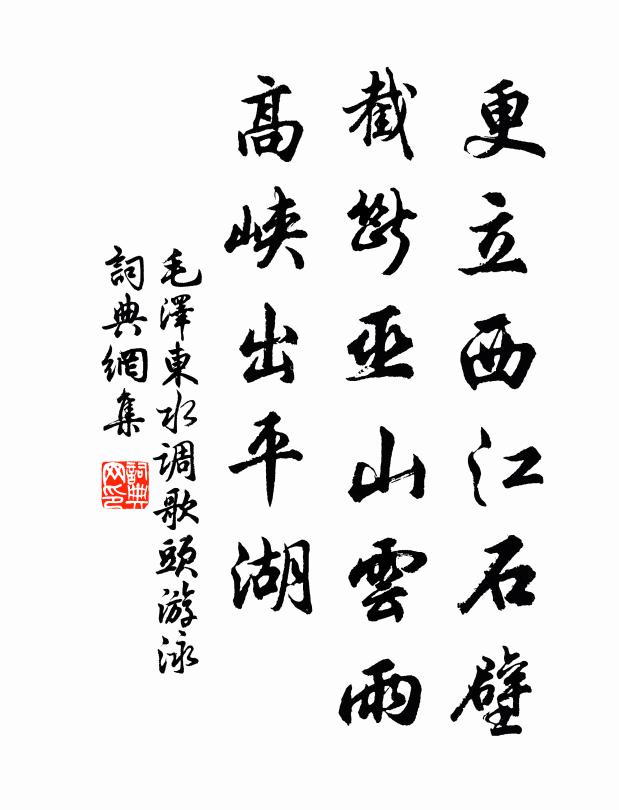 更立西江石壁
截斷巫山雲雨
高峽出平湖
毛澤東水调歌頭游泳
詞典網集
詞典
网印